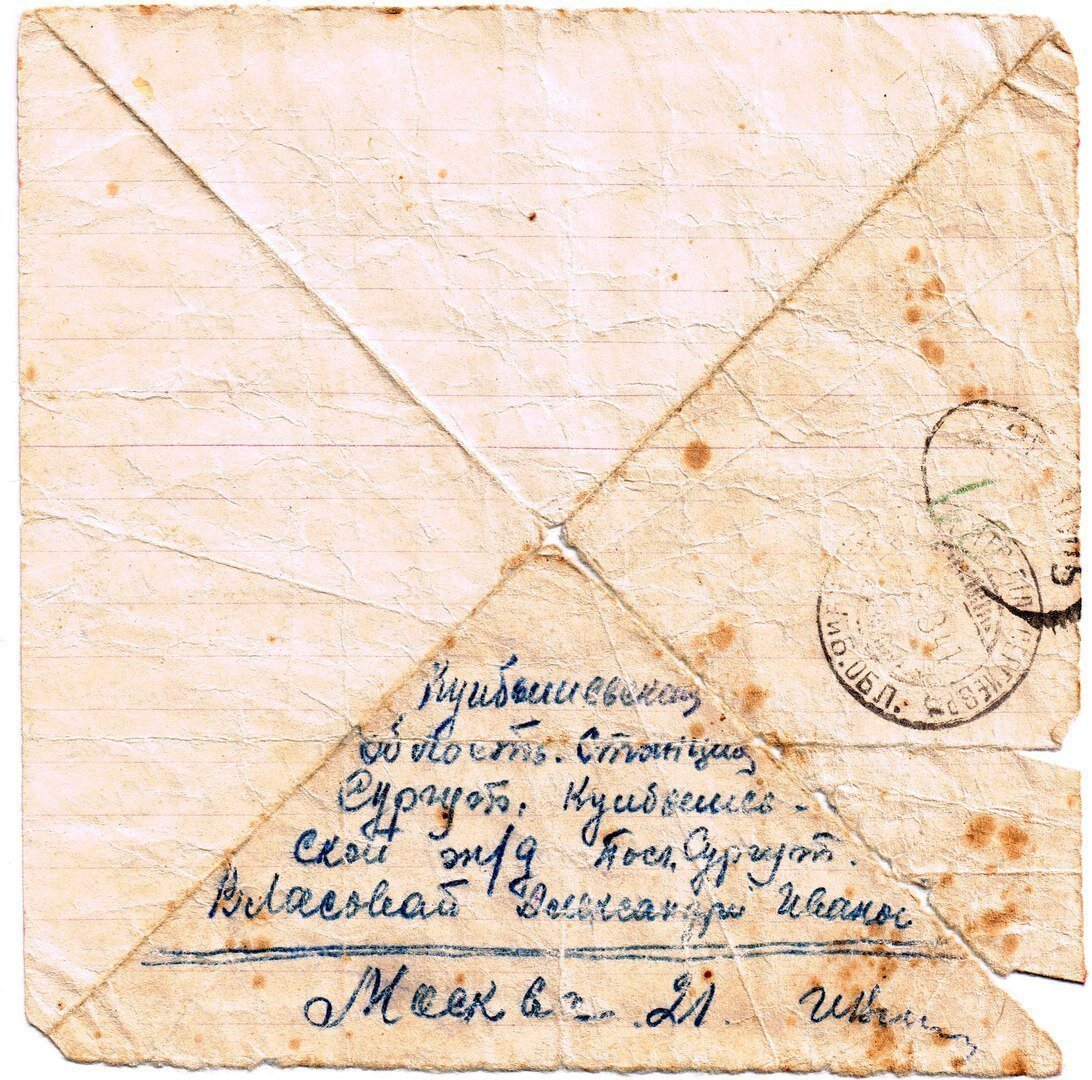 Куйбышевская
область. Станция
Сургут, Куйбышев-
ской ж/д Пос. Сургут.
Власовай Александре Иванов
Москва. 21.
ОБЛ.